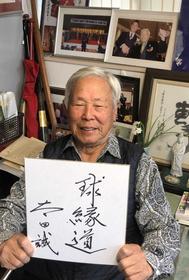 球縁道
田誠